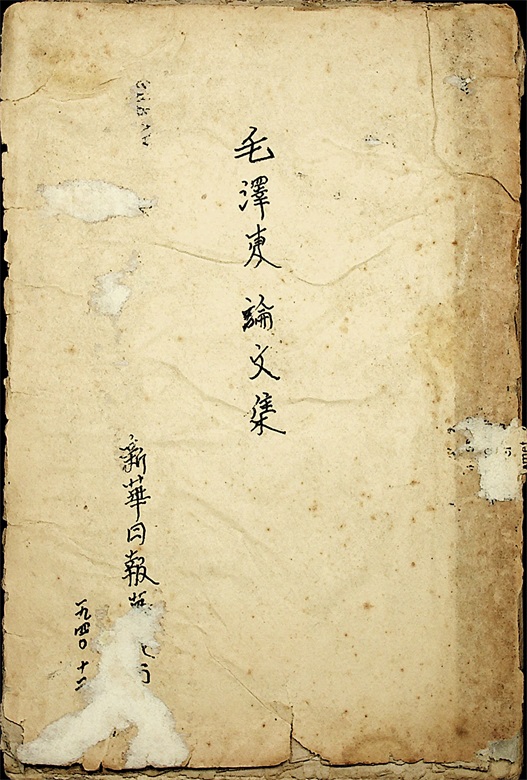 毛澤東論文集
新華日報
一九四〇 十二